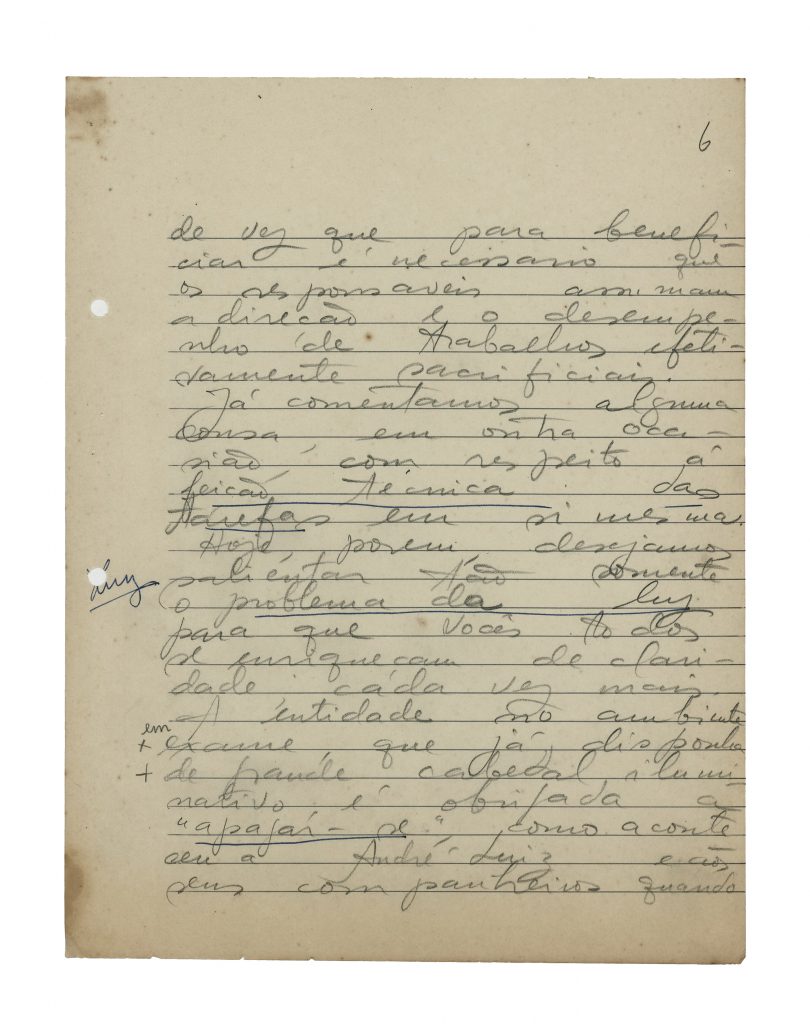 6
de vez que para benefi-
ciar é necessario que
os responsáveis assumam
a direcão e o desempe-
nho de trabalhos efeti-
vamente sacrificiais.
Já comentamos alguma
cousa em outra oca-
sião, com respeito á
feicão técnica das
tarefas em si mesma.
Hoje, porem desejamos
salientar tão somente
luz
o problema da luz
para que vocês todos
se enriquecam de clari-
dade cada vez mais.
A entidade no ambiente
em
+ exame, que já disponha
+ de grande cabedal ilumi-
nativo é obrigada a
"apagar-se", como aconte
ceu a André Luiz e aos
seus companheiros quando